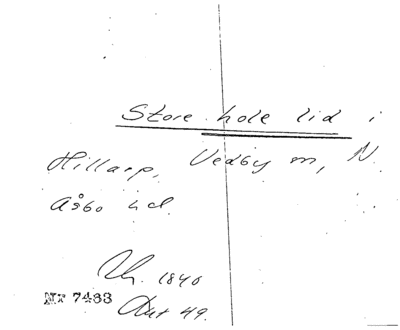 Store hole lid i
Hillarp, Vedby m, N.
Åsbo hd.
1840
Nr 7433
49.